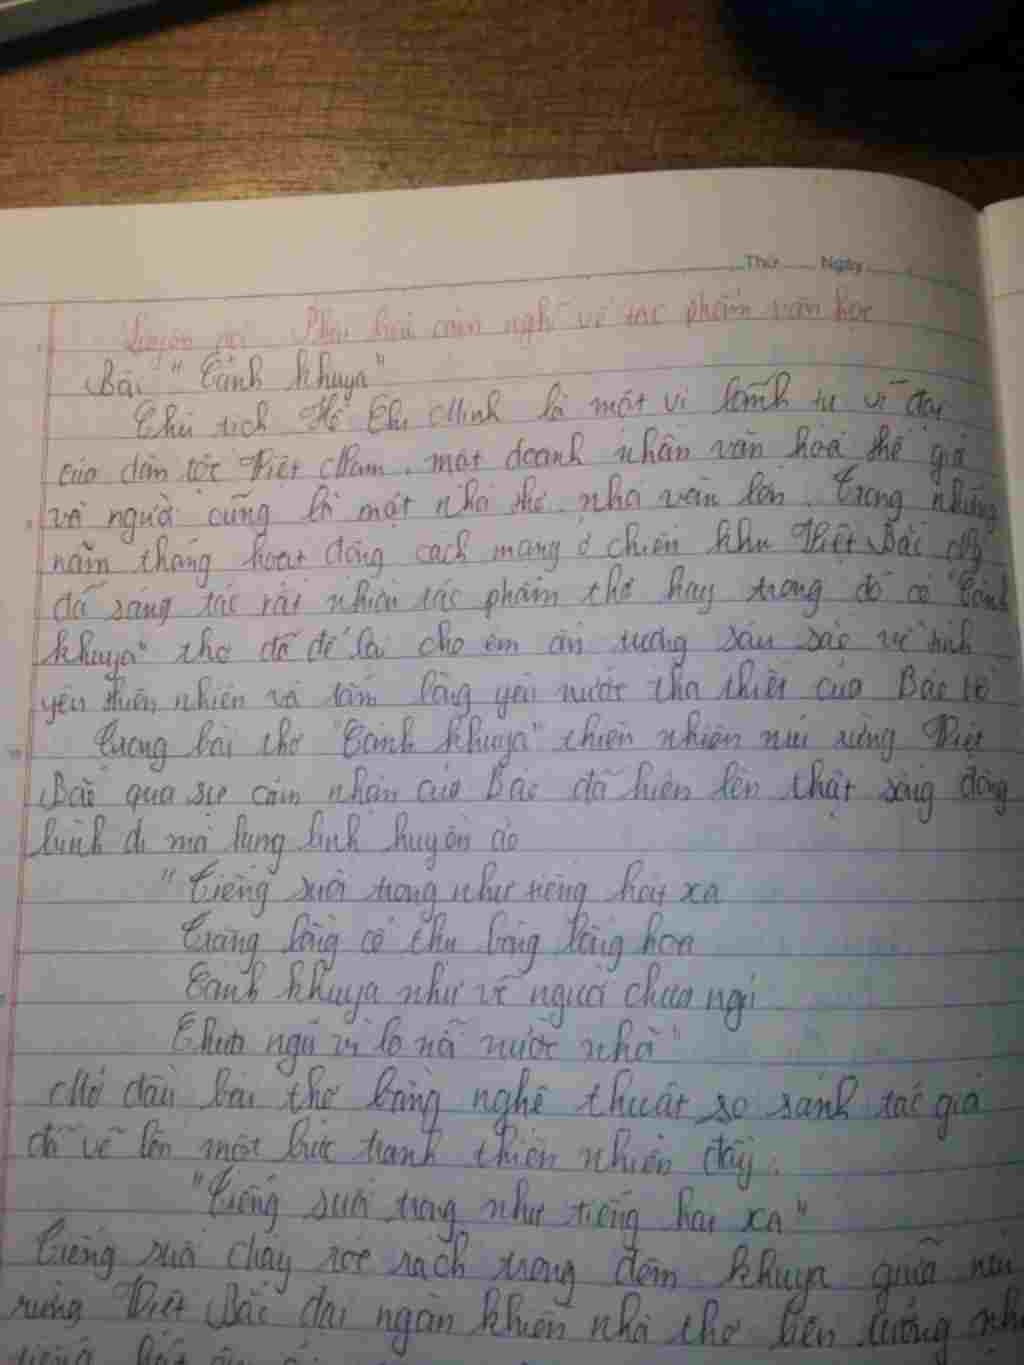 Thứ Ngày
Luyện nói Phát biểu cảm nghĩ về tác phẩm văn học
Bài "Cảnh khuya"
Chủ tịch Hồ Chí Minh là một vị lãnh tụ vĩ đại
của dân tộc Việt Nam, một doanh nhân văn hoá thế giới
và người cũng là một nhà thơ, nhà văn lớn. Trong những
năm tháng hoạt động cách mạng ở chiến khu Việt Bắc
đã sáng tác rất nhiều tác phẩm thơ hay trong đó có "Cảnh
khuya" thơ đã để lại cho em ấn tượng sâu sắc về tình
yêu thiên nhiên và tấm lòng yêu nước tha thiết của Bác
Trong bài thơ "Cảnh khuya" thiên nhiên núi rừng Việt
Bắc qua sự cảm nhận của Bác đã hiện lên thật sống động
bình dị mà lung linh huyền ảo
"Tiếng suối trong như tiếng hát xa
Trăng lồng cổ thụ bóng lồng hoa
Cảnh khuya như vẽ người chưa ngủ
Chưa ngủ vì lo nỗi nước nhà"
Mở đầu bài thơ bằng nghệ thuật so sánh tác giả
đã vẽ lên một bức tranh thiên nhiên đầy
"Tiếng suối trong như tiếng hát xa"
Tiếng suối chảy róc rách trong đêm khuya giữa núi
rừng Việt Bắc đại ngàn khiến nhà thơ liên tưởng như
tiếng hát